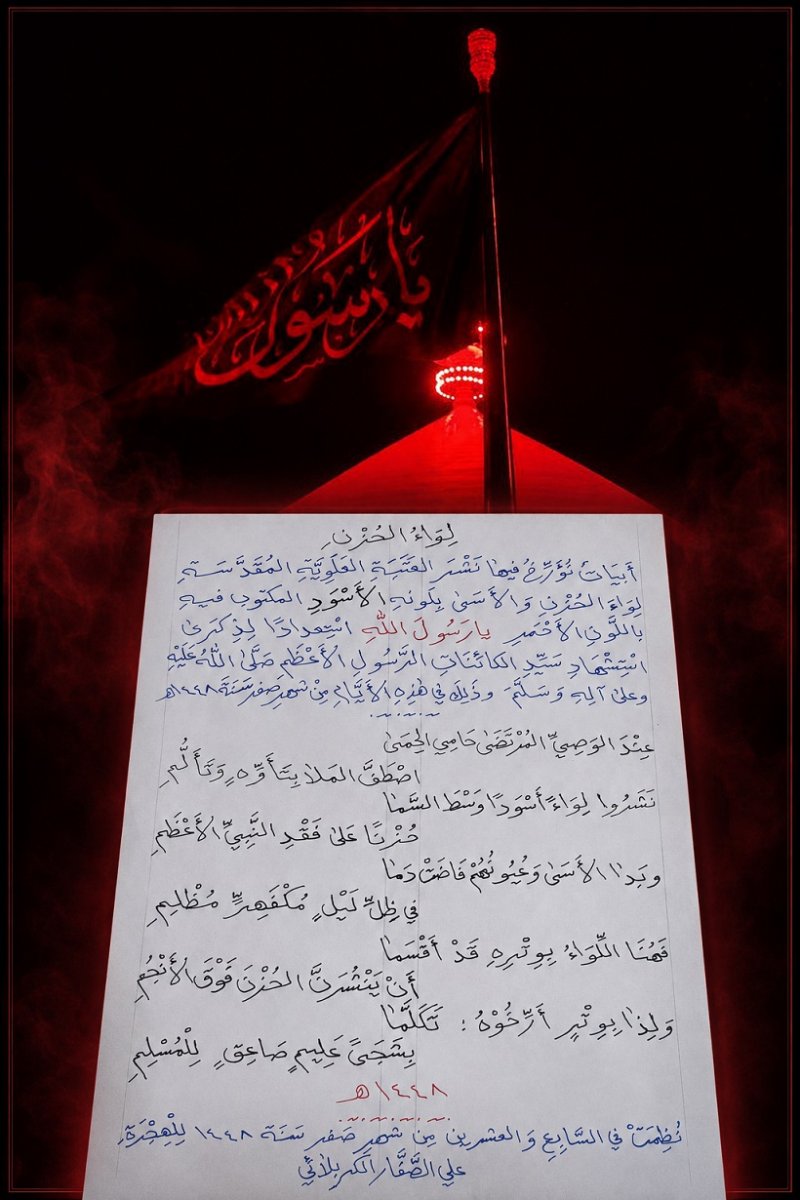 يا رسول
لِوَاءُ الحُزْنِ
أَبيَاتٌ نُؤَرِّخُ فيها نَشْرَ العَتَبَةِ العَلَوِيَّةِ المُقَدَّسَةِ
لِوَاءَ الحُزْنِ وَالأَسَىٰ بِلَونِهِ الأَسْوَدِ المكتوب فيهِ
باللَّونِ الأَحْمَرِ يارَسُولَ اللّٰهِ اسْتِعدادًا لِذِكرىٰ
اسْتِشْهادِ سَيِّدِ الكائنَاتِ الرَّسُولِ الأَعْظَمِ صَلَّىٰ اللّٰهُ عَلَيْهِ
وعلىٰ آلِهِ وَسَلَّمَ وذَلِكَ في هٰذِهِ الأَيَّامِ مِنْ شهرِ صَفَر سَنَةَ ١٤٤٨هـ
عِنْدَ الوَصِيِّ المُرْتَضَىٰ حَامِي الحِمَىٰ
اصْطَفَّ المَلا بِتَأَوُّهٍ وَتَأَلُّمِ
نَشَرُوا لِوَاءً أَسْوَدًا وَسْطَ السَّمَا
حُزْنًا عَلىٰ فَقْدِ النَّبِيِّ الأَعْظَمِ
وبَدا الأَسَىٰ وَعُيُونُهُمْ فَاضَتْ دَمَا
في ظِلِّ لَيْلٍ مُكْفَهِرٍّ مُظْلِمِ
فَهُنَا اللِّوَاءُ بِوِتْرِهِ قَدْ أَقْسَمَا
أَنْ يَنْشُرَنَّ الحُزْنَ فَوْقَ الأَنْجُمِ
وَلِذا بِوِتْرٍ أَرِّخُوْهُ : تَكَلَّمَا
بِشَجَىً عَلِيمٍ صَاعِقٍ لِلْمُسْلِمِ
١٤٤٨هـ
نُظِمَتْ في السَّابِعِ وَالعشرين مِن شهرِ صَفَر سَنَة ١٤٤٨ لِلْهِجْرَةِ
علي الصَّفَّار الكربلائي